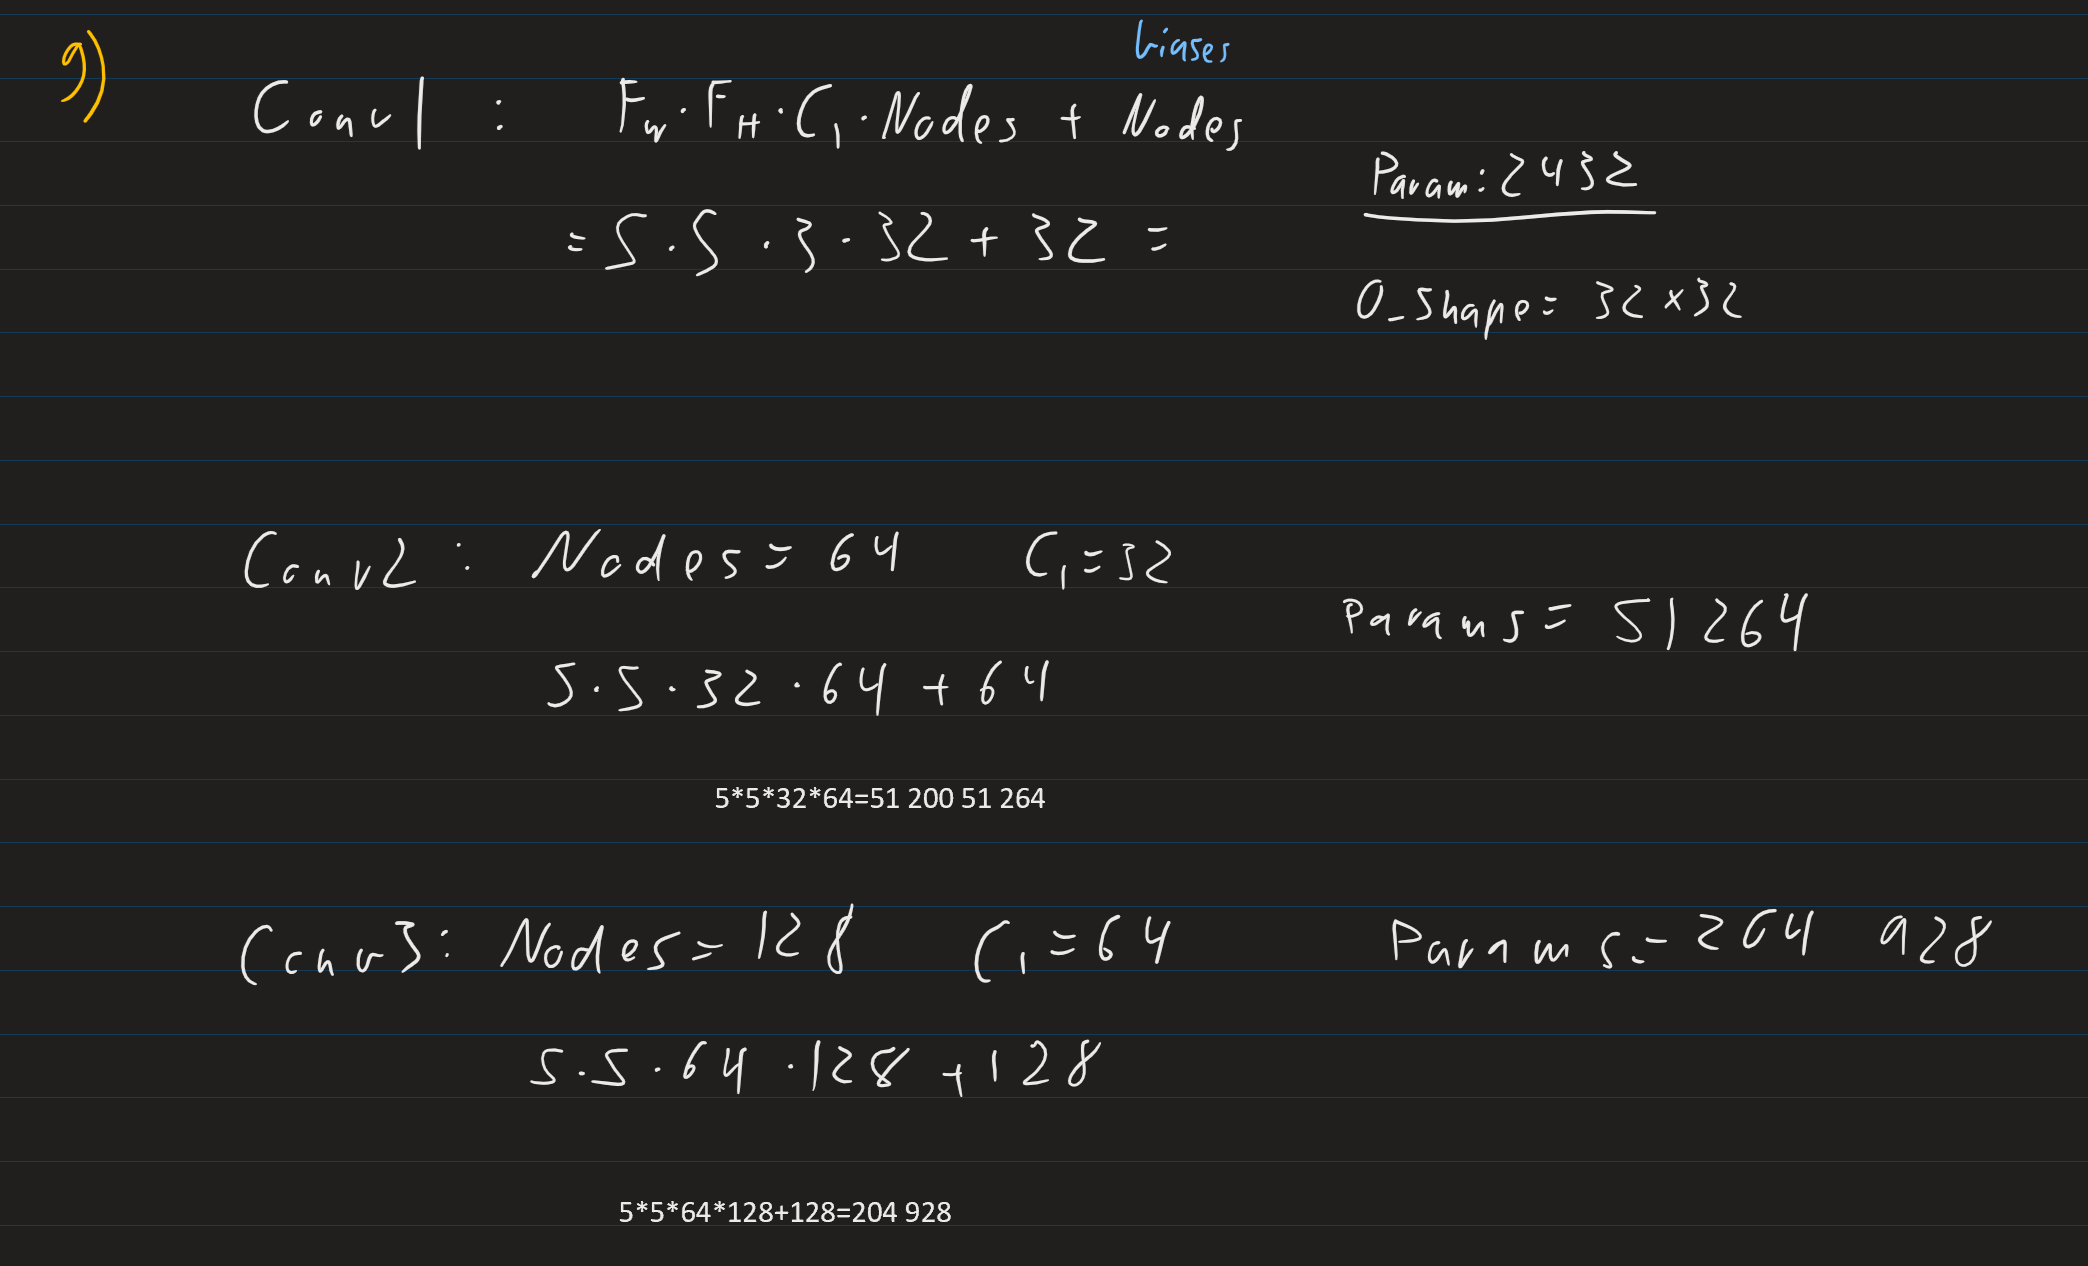 g)
biases
Conv1 : F_W · F_H · C_1 · Nodes + Nodes
Param: 2432
= 5 · 5 · 3 · 32 + 32 =
O_shape = 32 × 32
Conv2 : Nodes = 64 C_1 = 32
Params = 51264
5 · 5 · 32 · 64 + 64
5*5*32*64=51 200 51 264
Conv3: Nodes = 128 C_1 = 64 Params = 204 928
5 · 5 · 64 · 128 + 128
5*5*64*128+128=204 928